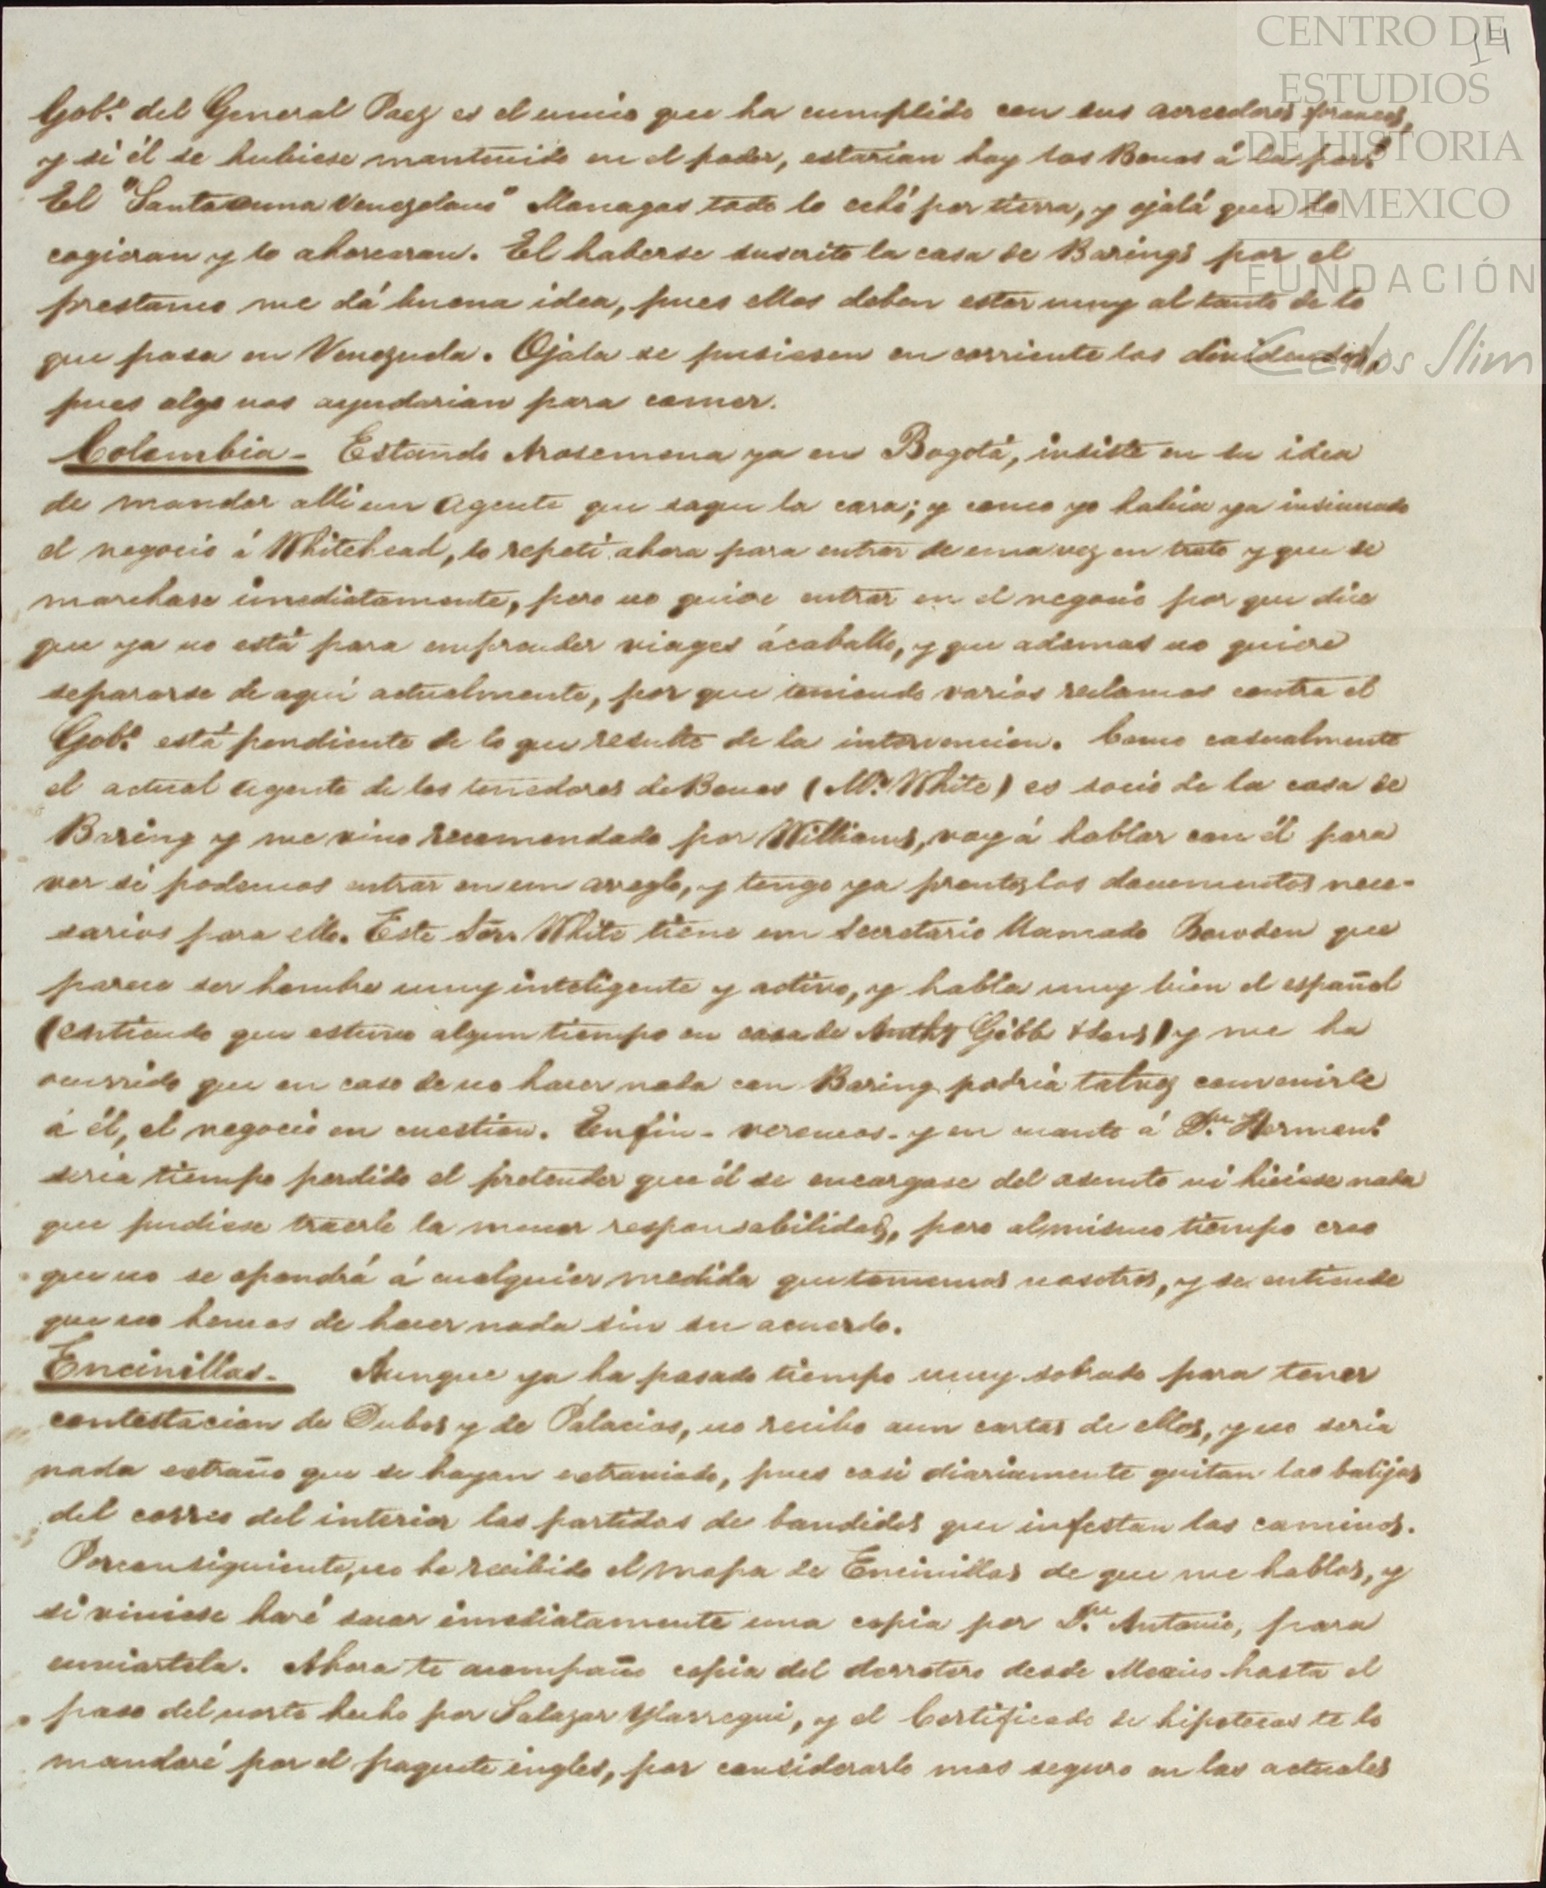 CENTRO DE
ESTUDIOS
DE HISTORIA
DE MEXICO
FUNDACIÓN
Carlos Slim
14
Gob.º del General Paez es el unico que ha cumplido con sus acreedores
y si él se hubiese mantenido en el poder, estarian hoy los Bonos á la par.
El "Santa anna Venezolano" Monagas todo lo echó por tierra, y ojalá que lo
cogieran y lo ahorcaran. El haberse suscrito la casa de Barings por el
prestamo me dá buena idea, pues ellos deben estar muy al tanto de lo
que pasa en Venezuela. Ojala se pusiesen en corriente los dividendos,
pues algo nos ayudarian para comer.
Colombia - Estando Arosemena ya en Bogotá, insiste en su idea
de mandar alli un agente que saque la cara; y como yo habia ya insinuado
el negocio á Whitehead, lo repeti ahora para entrar de una vez en trato y que se
marchase imediatamente, pero no quiere entrar en el negocio por que dice
que ya no está para emprender viages á caballo, y que ademas no quiere
separarse de aquí actualmente, por que teniendo varios reclamos contra el
Gob.º está pendiente de lo que resulte de la intervencion. Como casualmente
el actual agente de los tenedores de Bonos (Mr. White) es socio de la casa de
Baring y me vino recomendado por Williams, voy á hablar con él para
ver si podemos entrar en un areglo, y tengo ya prontos los documentos nece-
sarios para ello. Este Sor. White tiene un Secretario llamado Bowden que
parece ser hombre muy inteligente y activo, y habla muy bien el español
(entiendo que estuvo algun tiempo en casa de Anthy Gibb & Sons) y me ha
ocurrido que en caso de no hacer nada con Baring podria talvez convenirle
á él, el negocio en cuestion. Enfin - veremos - y en cuanto á Dn. Hermen.
seria tiempo perdido el pretender que él se encargase del asunto ni hiciese nada
que pudiese traerle la menor responsabilidad, pero al mismo tiempo creo
que no se opondrá á cualquier medida que tomemos nosotros, y se entiende
que no hemos de hacer nada sin su acuerdo.
Encinillas - Aunque ya ha pasado tiempo muy sobrado para tener
contestacion de Dubos y de Palacios, no recibo aun cartas de ellos, y no seria
nada extraño que se hayan extraviado, pues casi diariamente quitan las balijas
del correo del interior las partidas de bandidos que infestan los caminos.
Porconsiguiente, no he recibido el mapa de Encinillas de que me hablas, y
si viniese haré sacar imediatamente una copia por Dn. Antonio, para
enviartela. Ahora te acompaño copia del derrotero desde Mexico hasta el
paso del norte hecho por Salazar Ylarregui, y el Certificado de hipotecas te lo
mandaré por el paquete ingles, por considerarlo mas seguro en las actuales